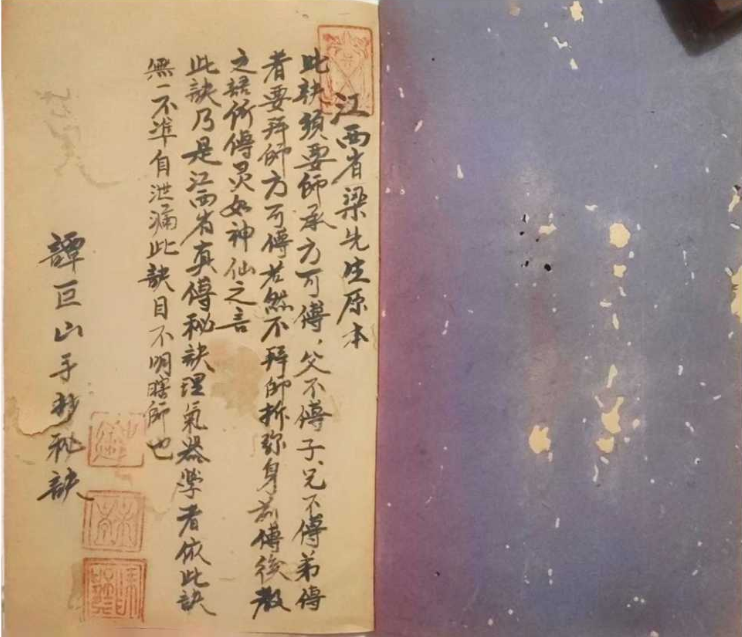 江西省梁先生原本
此訣須要師承方可傳，父不傳子、兄不傳弟傳
者要拜師方可傳若然不拜師折弥身前傳後教
之語所傳灵如神仙之言
此訣乃是江西省真傳秘訣理氣器學者依此訣
無一不準自泄漏此訣目不明瞎師也
譚巨山手抄秘訣